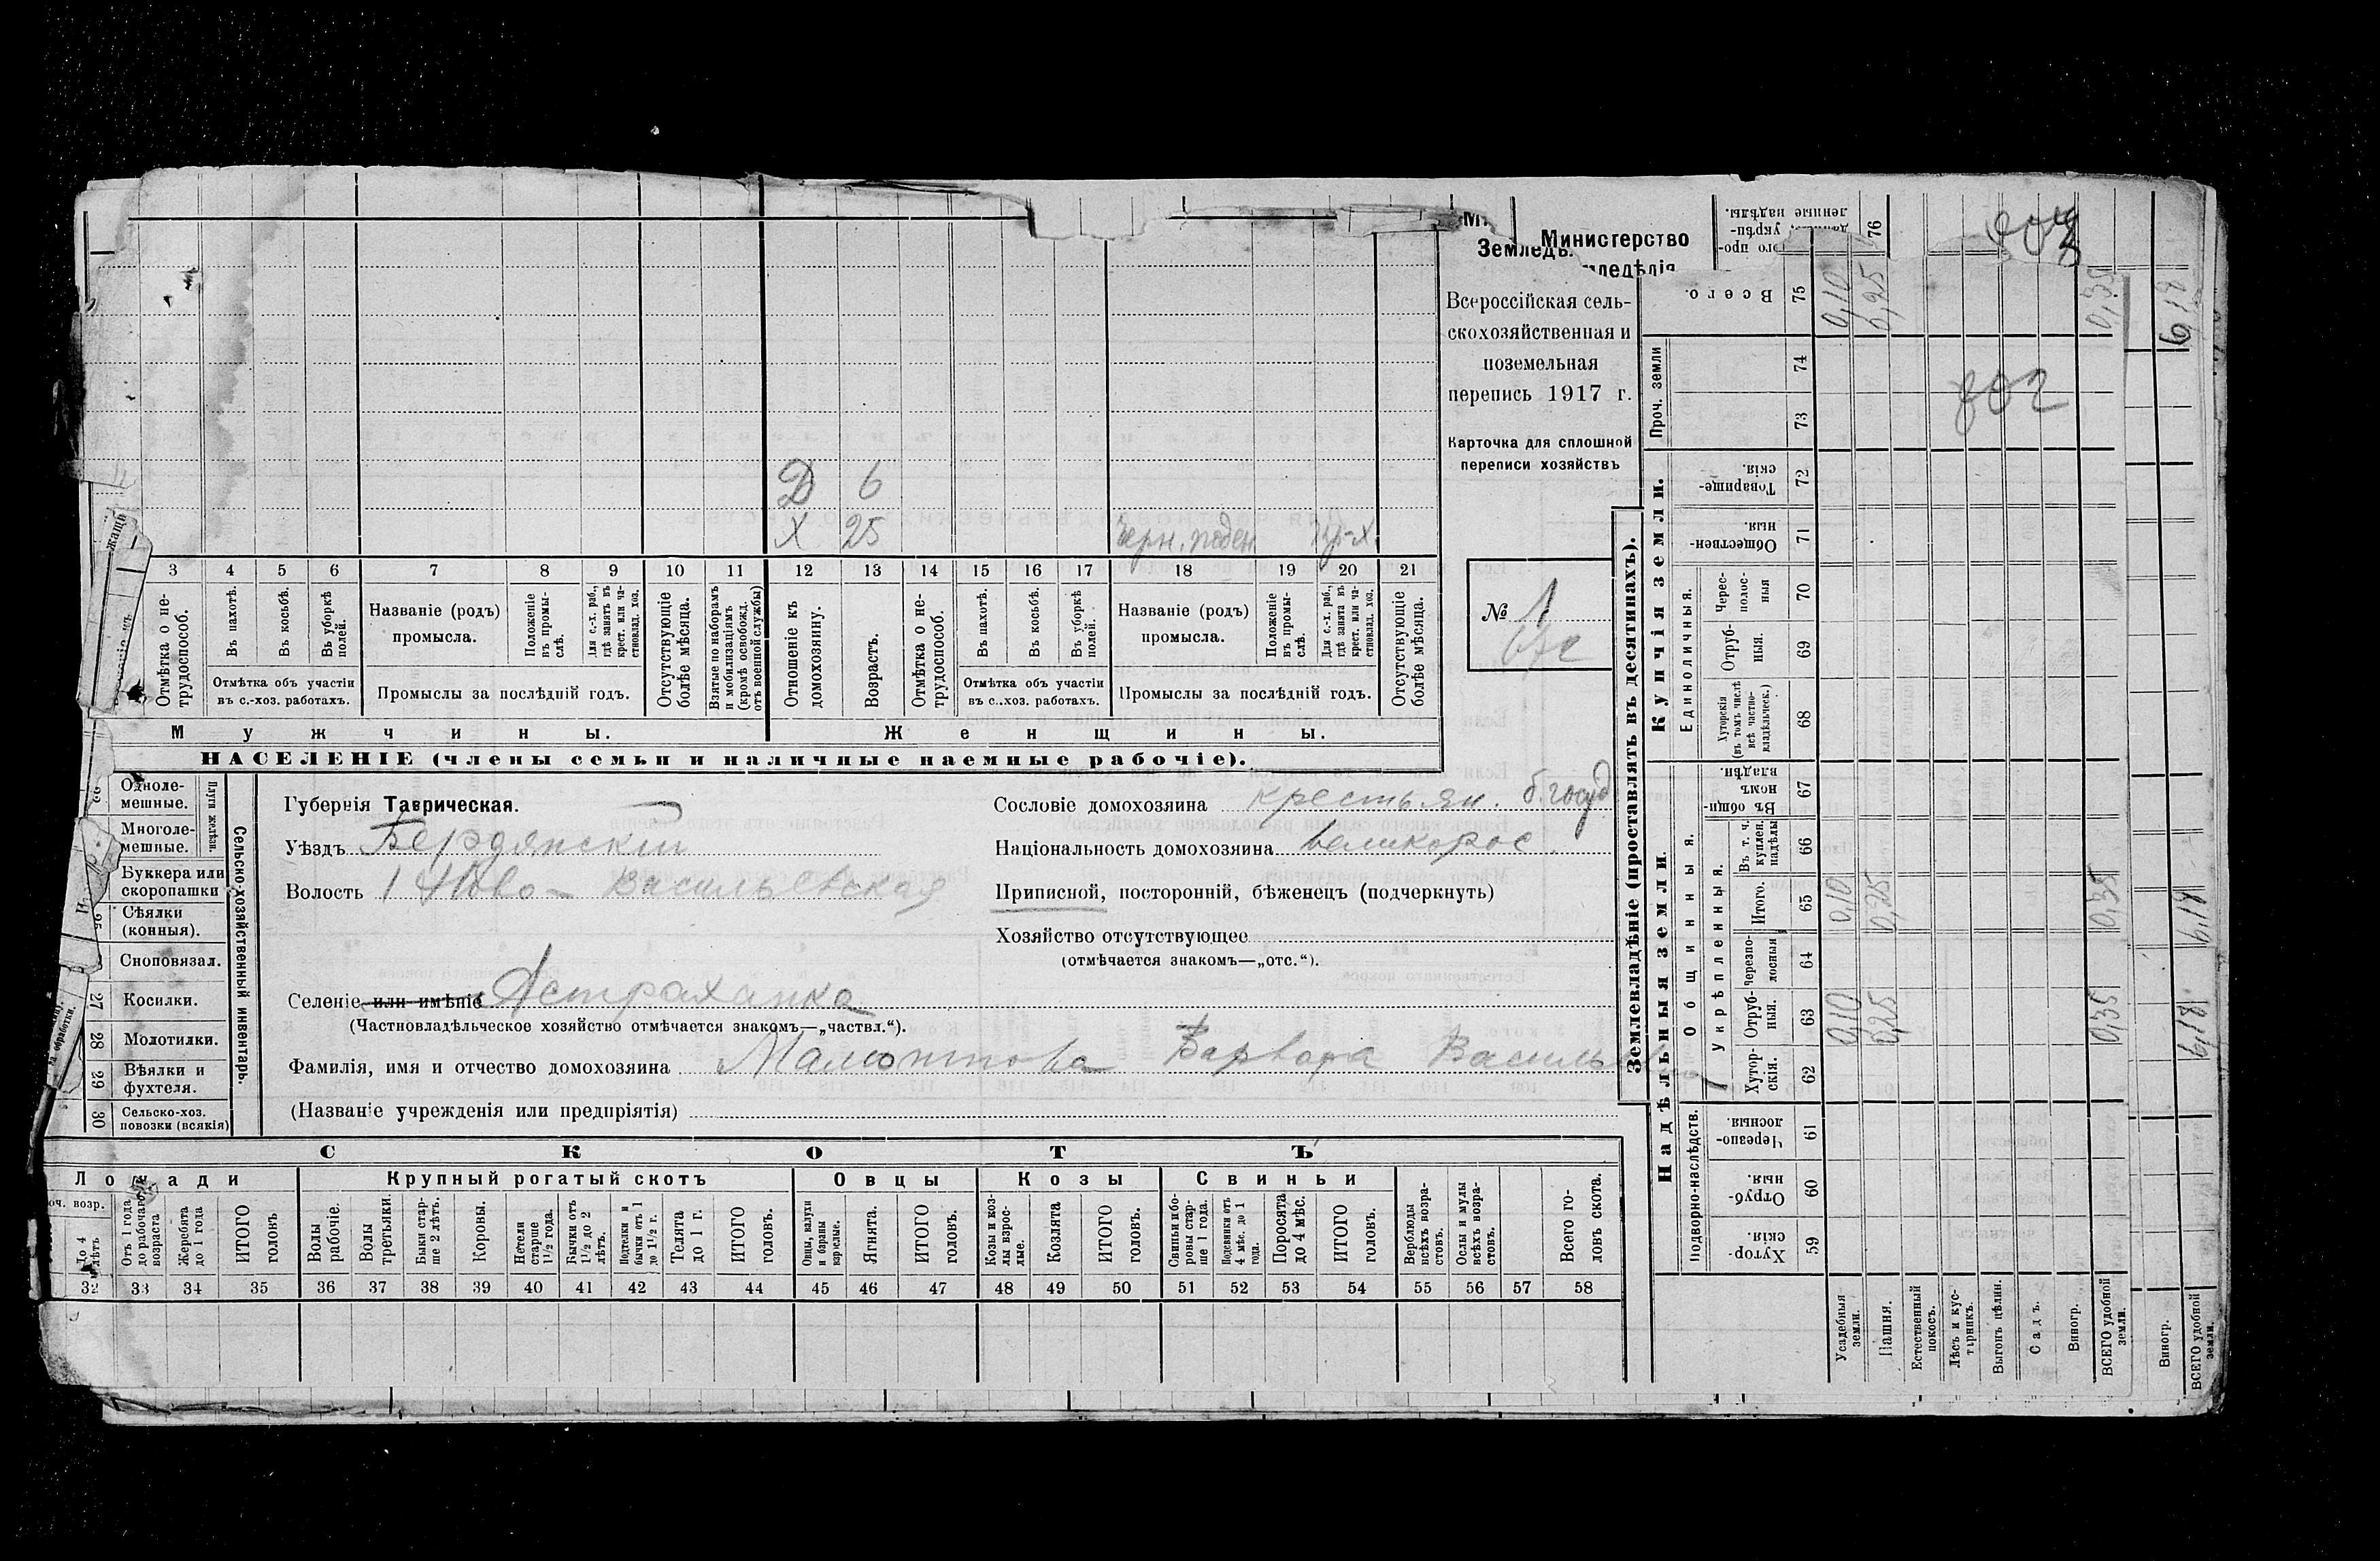 Министерство
Всероссійская сель-
скохозяйственная и
поземельная
перепись 1917 г.
Карточка для сплошной
переписи хозяйствъ
№ 1
Д 6
Х 25 Черн. поден. кр-х.
3 4 5 6 7 8 9 10 11 12 13 14 15 16 17 18 19 20 21
Отмѣтка о не-
трудоспособ.
Въ пахотѣ.
Въ косьбѣ.
Въ уборкѣ
полей.
Отмѣтка объ участіи
въ с.-хоз. работахъ.
Названіе (родъ)
промысла.
Положеніе
въ промы-
слѣ.
Для с.-х. раб.,
гдѣ занятъ въ
крест. или ча-
стновлад. хоз.
Промыслы за послѣдній годъ.
Отсутствующіе
болѣе мѣсяца.
Взятые по наборамъ
и мобилизаціямъ
(кромѣ освобожд.
отъ военной службы)
Отношеніе къ
домохозяину.
Возрастъ.
Отмѣтка о не-
трудоспособ.
Въ пахотѣ.
Въ косьбѣ.
Въ уборкѣ
полей.
Отмѣтка объ участіи
въ с.-хоз. работахъ.
Названіе (родъ)
промысла.
Положеніе
въ промы-
слѣ.
Для с.-х. раб.,
гдѣ занята въ
крест. или ча-
стновлад. хоз.
Промыслы за послѣдній годъ.
Отсутствующіе
болѣе мѣсяца.
Мужчины. Женщины.
НАСЕЛЕНІЕ (члены семьи и наличные наемные рабочіе).
Губернія Таврическая.
Уѣздъ Бердянскій
Волость 1 Ново-Васильевская
Селеніе или имѣніе Астраханка
(Частновладѣльческое хозяйство отмѣчается знакомъ—„частвл.“).
Фамилія, имя и отчество домохозяина Мамонтова Варвара Василь
(Названіе учрежденія или предпріятія)
Сословіе домохозяина крестьян. б. госуд
Національность домохозяина великорос.
Приписной, посторонній, бѣженецъ (подчеркнуть)
Хозяйство отсутствующее
(отмѣчается знакомъ—„отс.“).
Одноле-
мешные.
Многоле-
мешные.
Плуги желѣзн.
Буккера или
скоропашки
Сѣялки
(конныя).
Сноповязал.
27 Косилки.
28 Молотилки.
29 Вѣялки и
фухтеля.
30 Сельско-хоз.
повозки (всякія)
Сельско-хозяйственный инвентарь.
СКОТЪ
Лошади Крупный рогатый скотъ Овцы Козы Свиньи
До 4
лѣтъ
Отъ 1 года
до рабочаго
возраста
Жеребята
до 1 года
ИТОГО
головъ
Волы
рабочіе.
Волы
третьяки.
Быки стар-
ше 2 лѣтъ.
Коровы.
Нетели
старше
1½ года.
Бычки отъ
1½ до 2
лѣтъ.
Подтелки и
бычки отъ 1
до 1½ г.
Телята
до 1 г.
ИТОГО
головъ.
Овцы, валухи
и бараны
взрослые.
Ягнята.
ИТОГО
головъ.
Козы и коз-
лы взрос-
лые.
Козлята
ИТОГО
головъ.
Свиньи и бо-
ровы стар-
ше 1 года.
Подсвинки отъ
4 мѣс. до 1
года.
Поросята
до 4 мѣс.
ИТОГО
головъ.
Верблюды
всѣхъ возра-
стовъ.
Ослы и мулы
всѣхъ возра-
стовъ.
Всего го-
ловъ скота.
32 33 34 35 36 37 38 39 40 41 42 43 44 45 46 47 48 49 50 51 52 53 54 55 56 57 58
Землевладѣніе (проставлять въ десятинахъ).
Купчія земли.
Надѣльныя земли.
Проч. земли
Единоличныя.
Общинныя.
Укрѣпленныя.
Подворно-наслѣдств.
76
Всего. 75 0,10 0,25 0,35 6,18
74
73 802
Товарище-
скія. 72
Обществен-
ныя. 71
Черес-
полос-
ныя 70
Отруб-
ныя. 69
Хуторскія
(въ томъ числѣ
всѣ частно-
владѣльческ.) 68
Въ общи-
номъ
владѣн. 67
Въ т. ч.
куплен.
надѣлы 66
Итого. 65 0,10 0,25 0,35 6,18
Черезпо-
лосныя 64
Отруб-
ныя. 63 0,10 0,25 0,35 6,18
Хутор-
скія. 62
Черезпо-
лосныя. 61
Отруб-
ныя. 60
Хутор-
скія. 59
Усадебныя
земли.
Пашня.
Естественный
покосъ.
Лѣсъ и кус-
тарникъ.
Выгонъ цѣлин.
Садъ.
Виногр.
ВСЕГО удобной
земли.
Виногр.
ВСЕГО удобной
земли.